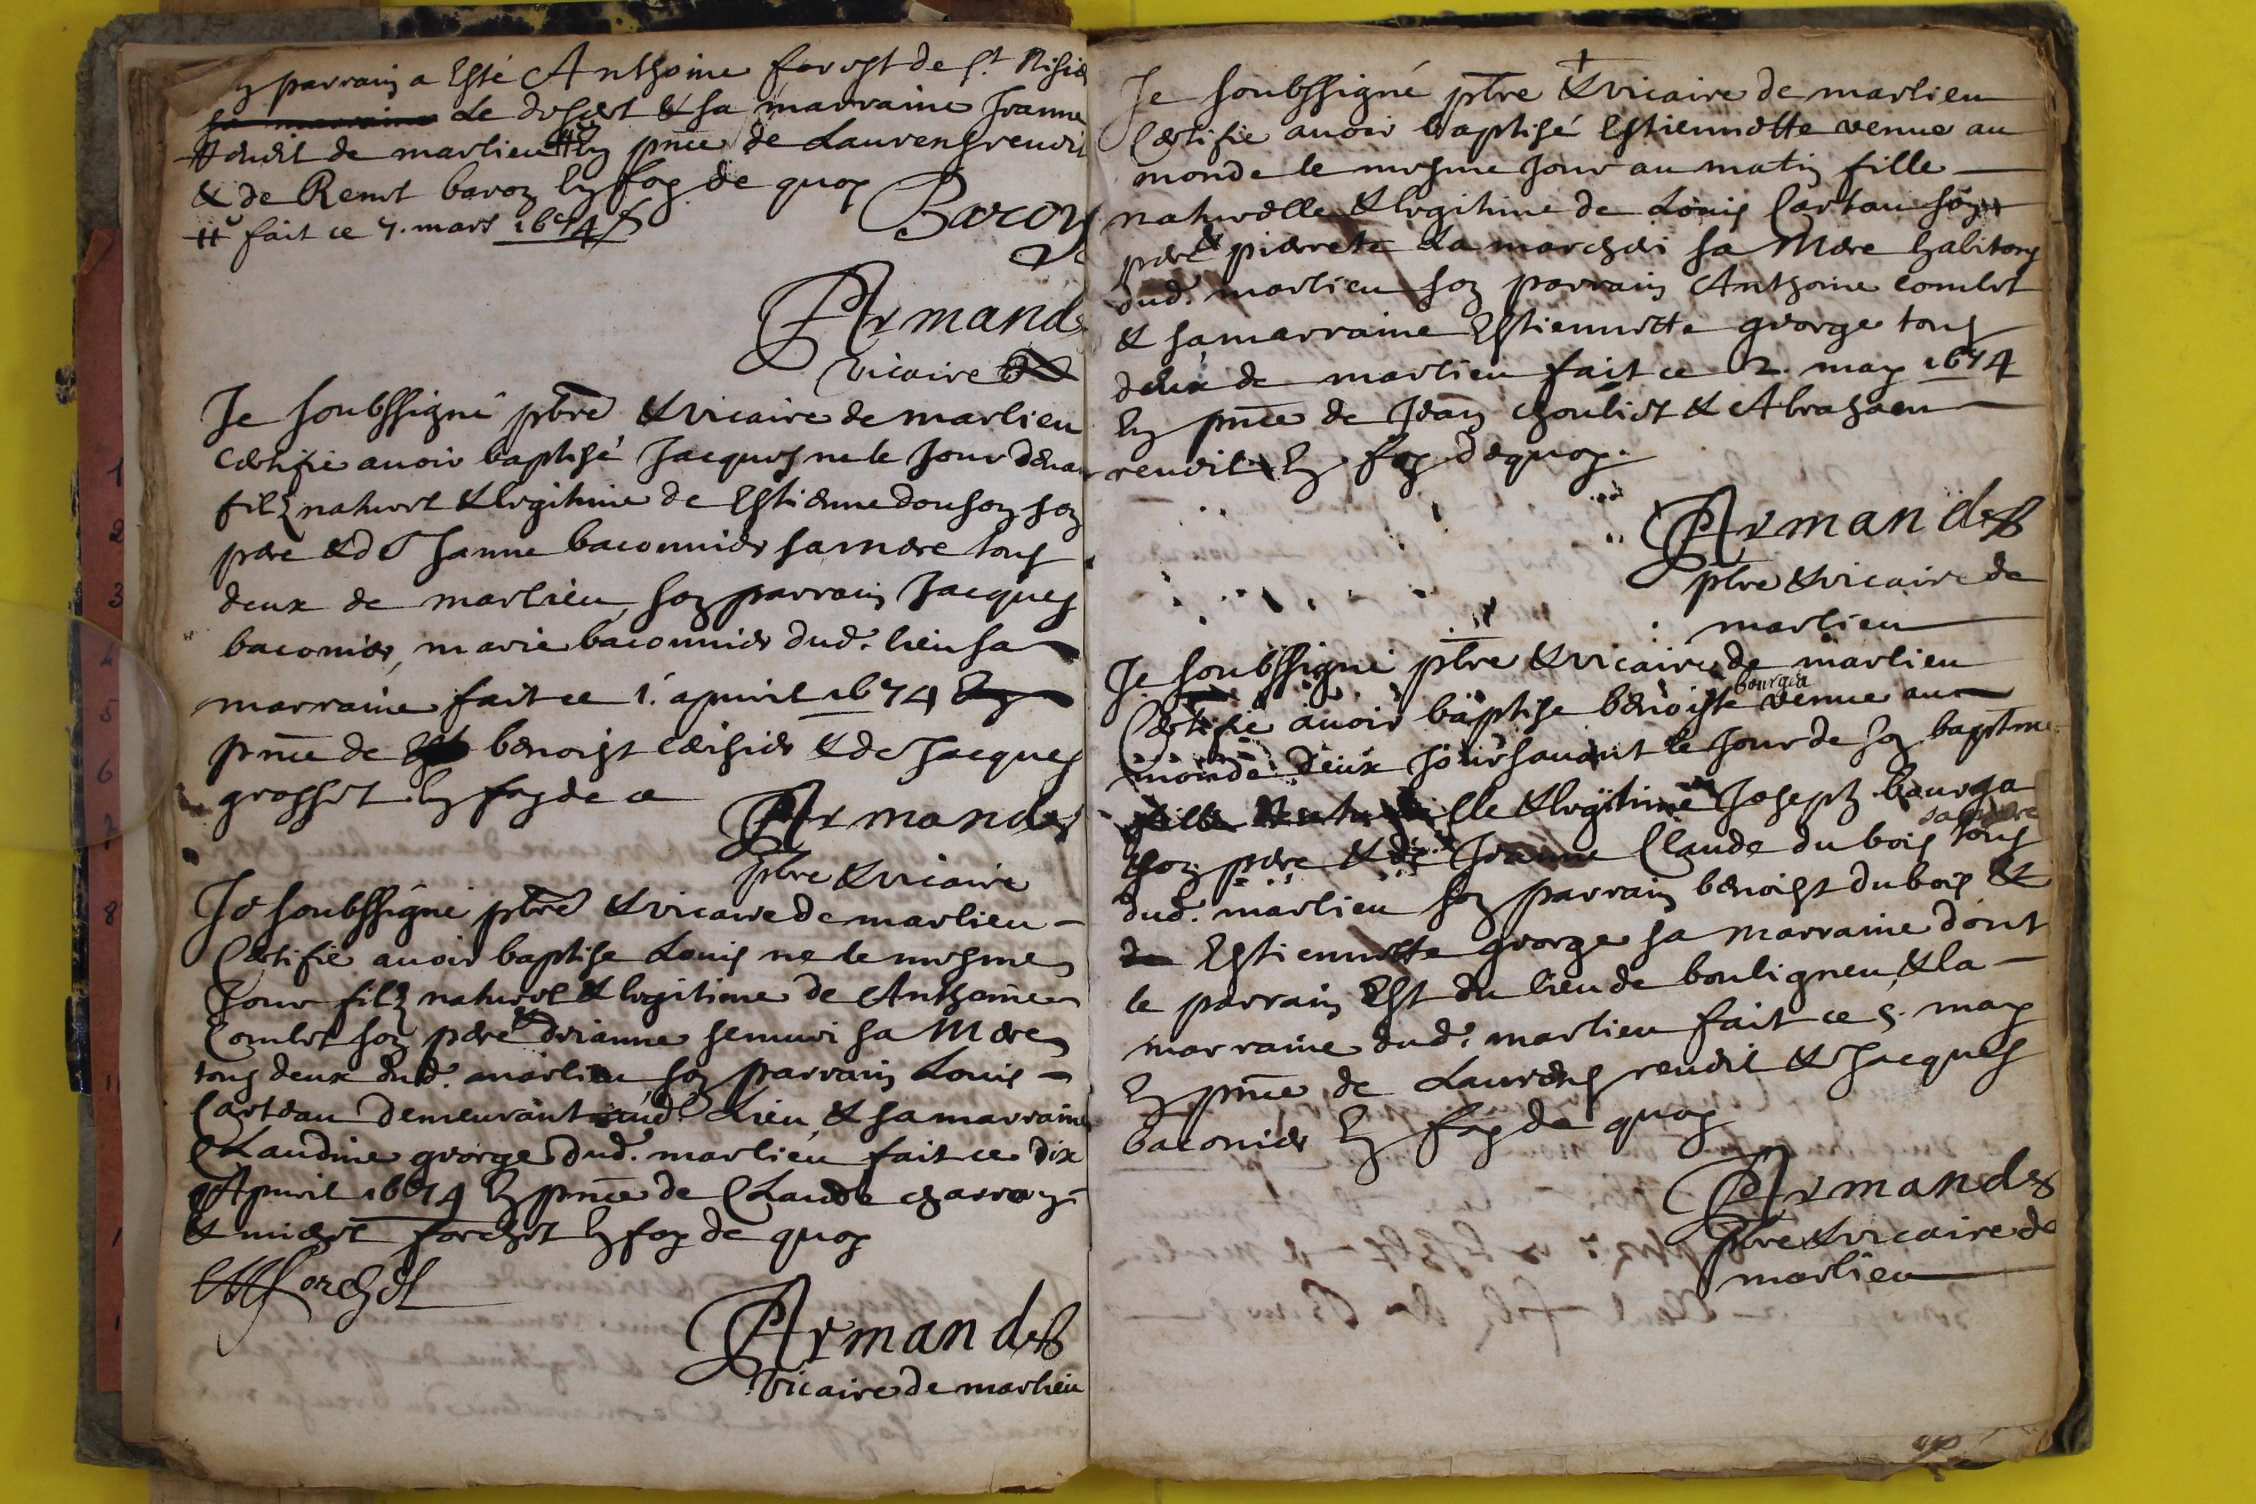 parrain a Esté Anthoine forest de st Nisie
Le desert & sa marraine Jeanne
de marlieu En pnce de Laurens reudil
& de Remt baron En foy de quoy
fait ce 7. mars 1674
Baron
Armand
vicaire
Je soubssigné pbre & vicaire de marlieu
Certifie avoir baptisé Jacques ne le Jour
filz naturel & legitime de Estienne douson son
pere & de Janne baconnier sa mere tous
deux de marlieu, son parrain Jacques
baconier, marie baconnier dud. lieu sa
marraine fait ce 1. apuril 1674 En
pnce de benoist & de Jacques
grosset En foy de ce
Armandes
pbre & vicaire
Je soubssigné pbre & vicaire de marlieu
Certifie avoir baptise Louis ne le mesme
Jour filz naturel & legitime de Anthoine
Combet son pere & drianne semuri sa Mere
tous deux dud. marlieu son parrain Louis
Carteau demeurant aud. Lieu & sa marraine
Claudine george dud. marlieu fait ce dix
Apuril 1674 En pnce de Claude charroy
& michel forchet En foy de quoy
M forchet
Armandes
vicaire de marlieu
Je soubssigné pbre & vicaire de marlieu
Certifie avoir baptisé Estiennette venue au
monde le mesme Jour au matin fille
naturelle & legitime de Louis Cartau son
pere & pierrete La mercher sa Mere habitans
dud. marlieu son parrain Anthoine combet
& sa marraine Estiennette george tous
deux de marlieu fait ce 2. may 1674
En pnce de Jean choulict & Abraham
reudil En foy de quoy.
Armandes
pbre & vicaire de
marlieu
Je soubssigné pbre & vicaire de marlieu
bourga
Certifie avoir baptise benoiste venue au
monde deux Jours avant le Jour de son baptme
fille & legitime Joseph bourga
sa mere
son pere & de Jeanne Claude du bois tous
dud. marlieu son parrain benoist dubois &
Estiennette george sa marraine dont
le parrain Est du lieu de bouligneu & la
marraine dud. marlieu fait ce 5. may
En pnce de Laurens reudil & Jacques
baconier En foy de quoy
Armandes
pbre & vicaire de
marlieu